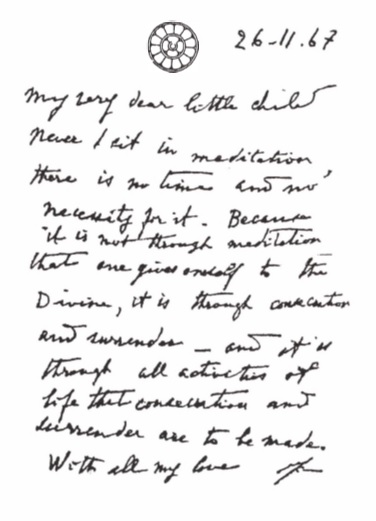 26-11.67
My very dear little child
Never I sit in meditation
there is no time and no
necessity for it. Because
it is not through meditation
that one gives oneself to the
Divine, it is through consecration
and surrender – and it is
through all activities of
life that consecration and
surrender are to be made.
With all my love